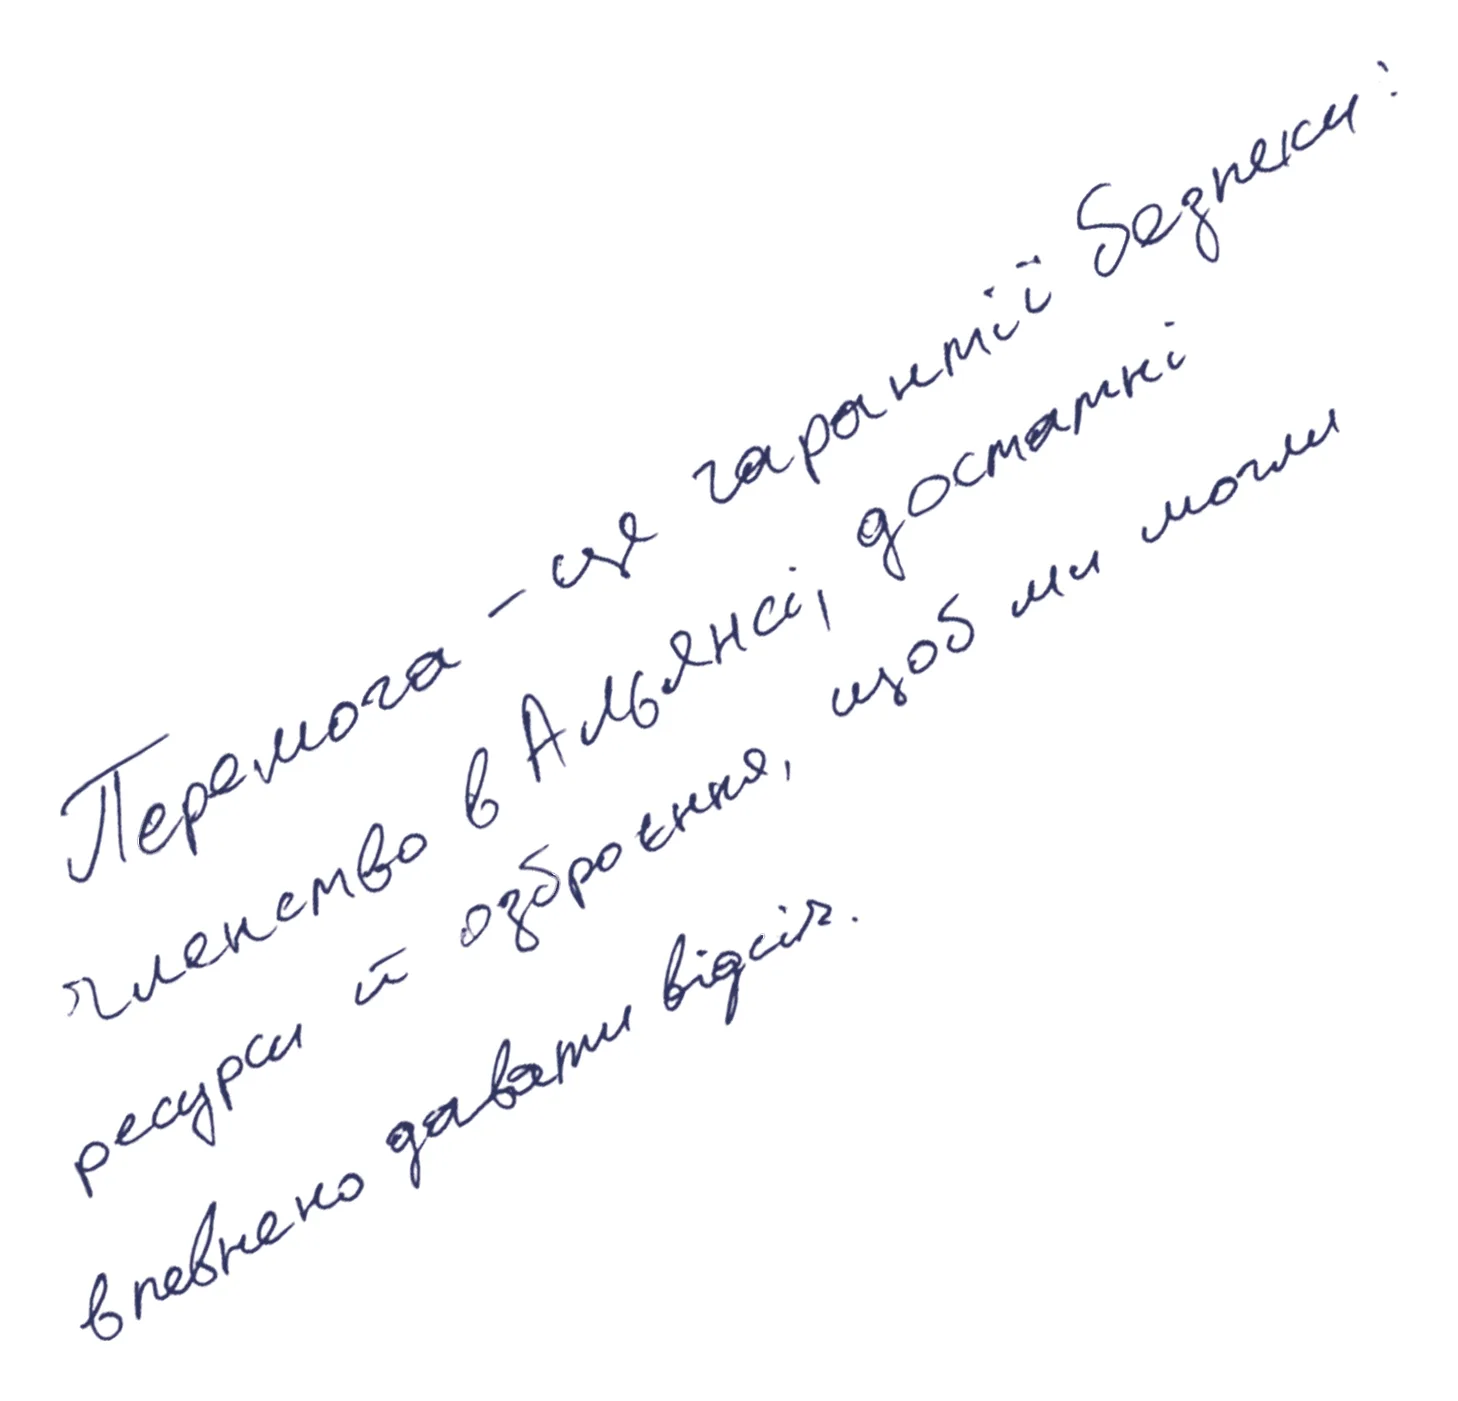 Перемога – це гарантії безпеки:
членство в Альянсі, достатні
ресурси й озброєння, щоб ми могли
впевнено давати відсіч.